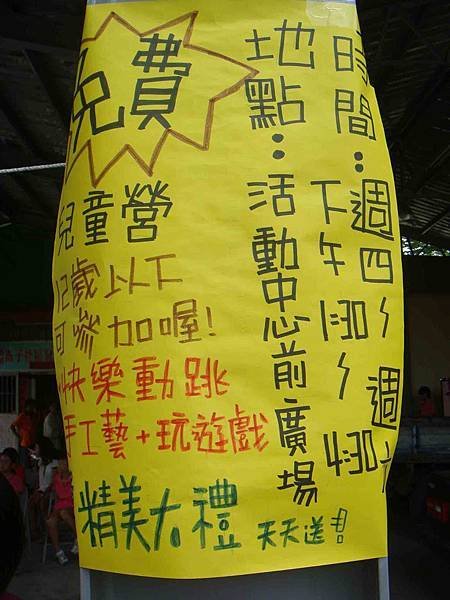 時間：週四～週六
下午1:30～4:30
地點：活動中心前廣場
免費
兒童營
12歲以下
可參加喔!
快樂動跳
手工藝+玩遊戲
精美大禮 天天送!!